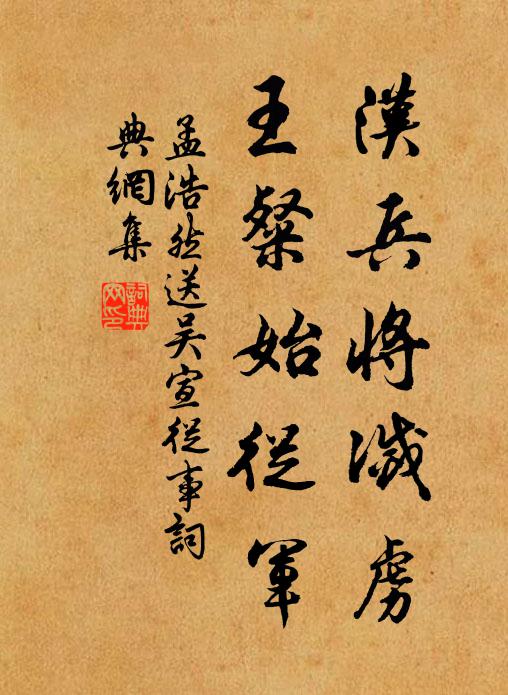 漢兵將滅虜
王粲始從軍
孟浩然送吴宣從事詞
典網集
詞典
网印